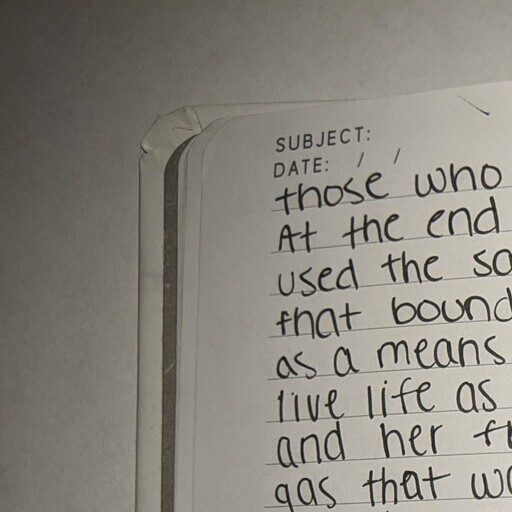 SUBJECT:
DATE: / /
those who
At the end
used the
that bound
as a means
live life as
and her
gas that